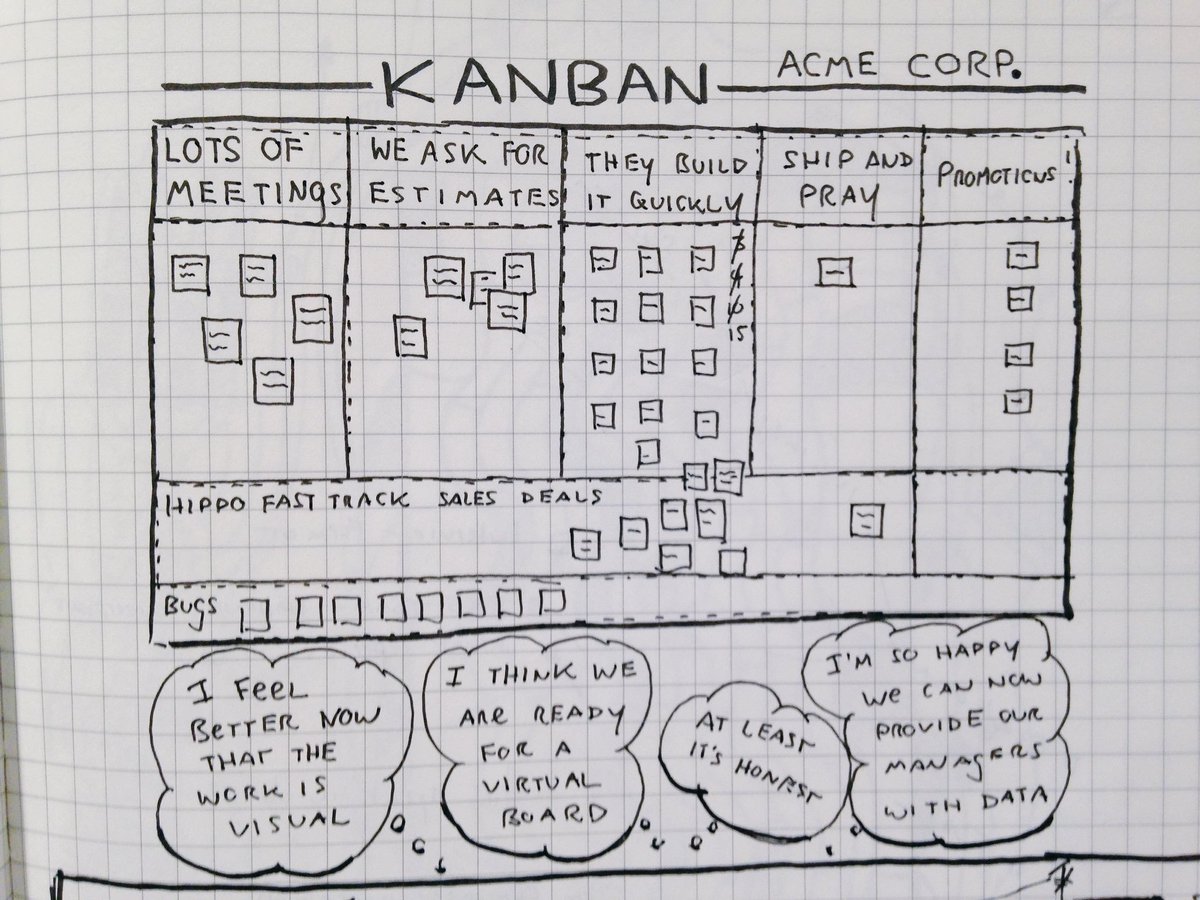 KANBAN
ACME CORP.
LOTS OF
MEETINGS
WE ASK FOR
ESTIMATES
THEY BUILD
IT QUICKLY
SHIP AND
PRAY
PROMOTIONS!
15
HIPPO FAST TRACK SALES DEALS
BUGS
I FEEL
BETTER NOW
THAT THE
WORK IS
VISUAL
I THINK WE
ARE READY
FOR A
VIRTUAL
BOARD
AT LEAST
IT'S HONEST
I'M SO HAPPY
WE CAN NOW
PROVIDE OUR
MANAGERS
WITH DATA